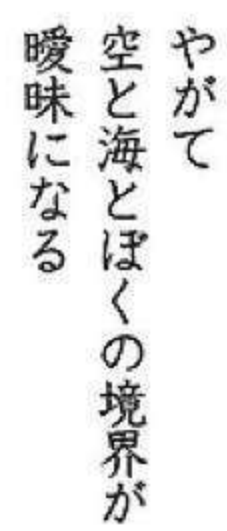 やがて
空と海とぼくの境界が
曖昧になる